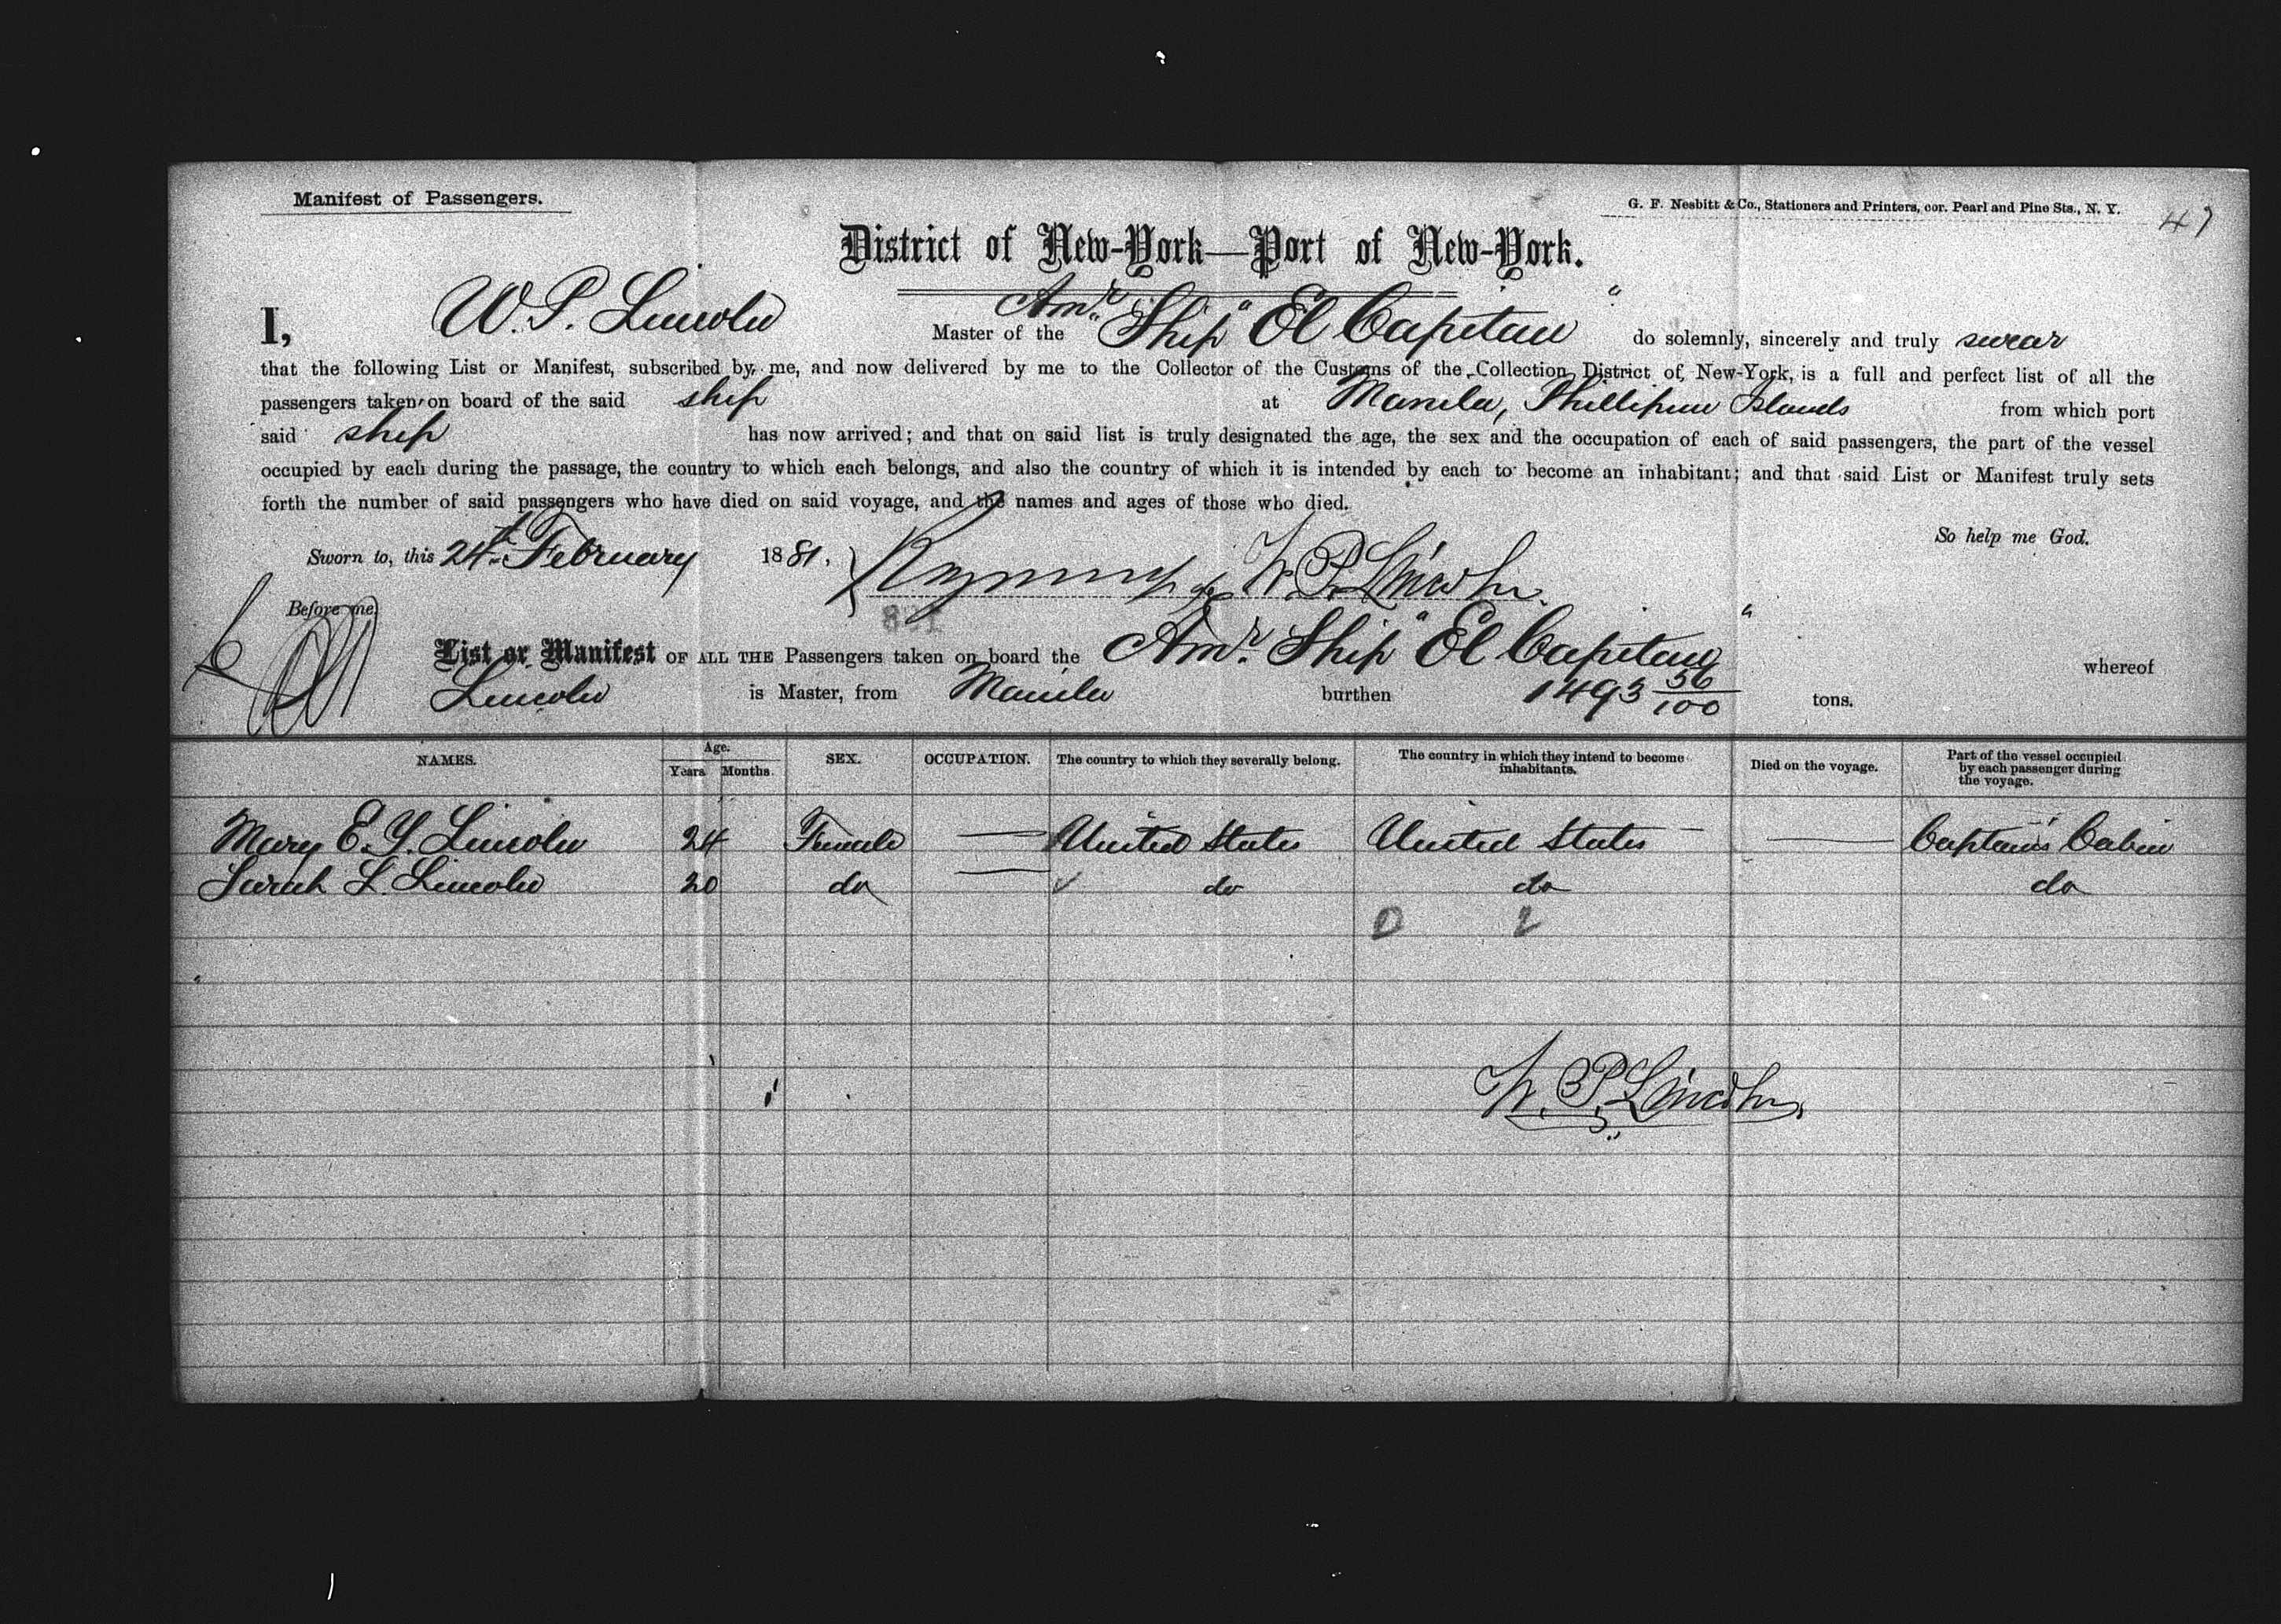 Manifest of Passengers.
G. F. Nesbitt & Co., Stationers and Printers, cor. Pearl and Pine Sts., N. Y.
47
District of New-York—Port of New-York.
I, W. P. Lincoln Master of the Amr. Ship "El Capitan" do solemnly, sincerely and truly swear
that the following List or Manifest, subscribed by me, and now delivered by me to the Collector of the Customs of the Collection District of New-York, is a full and perfect list of all the
passengers taken on board of the said ship at Manila, Phillipine Islands from which port
said ship has now arrived; and that on said list is truly designated the age, the sex and the occupation of each of said passengers, the part of the vessel
occupied by each during the passage, the country to which each belongs, and also the country of which it is intended by each to become an inhabitant; and that said List or Manifest truly sets
forth the number of said passengers who have died on said voyage, and the names and ages of those who died.
So help me God.
Sworn to, this 24th February 1881, W. P. Lincoln
Before me,
List or Manifest OF ALL THE Passengers taken on board the Amr. Ship "El Capitan" whereof
Lincoln is Master, from Manila burthen 1493 56/100 tons.
NAMES. Age. Years Months. SEX. OCCUPATION. The country to which they severally belong. The country in which they intend to become inhabitants. Died on the voyage. Part of the vessel occupied by each passenger during the voyage.
Mary E. Y. Lincoln 24 Female — United States United States — Captain's Cabin
Sarah L. Lincoln 20 do — do do do
W. P. Lincoln